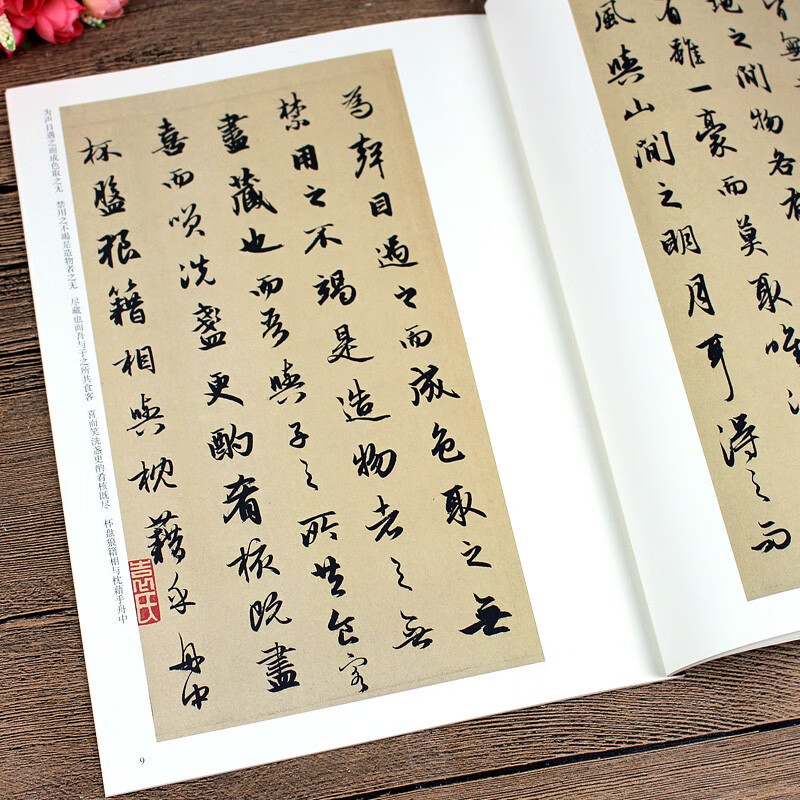 無
地之間物各有
有雖一豪而莫取唯
風與山間之明月耳得之而
為聲目遇之而成色取之無
禁用之不竭是造物者之無
盡藏也而吾與子之所共食客
喜而笑洗盞更酌肴核既盡
杯盤狼籍相與枕藉乎舟中
袁氏
为声目遇之而成色取之无 禁用之不竭是造物者之无 尽藏也而吾与子之所共食客 喜而笑洗盏更酌肴核既尽 杯盘狼籍相与枕藉乎舟中
9